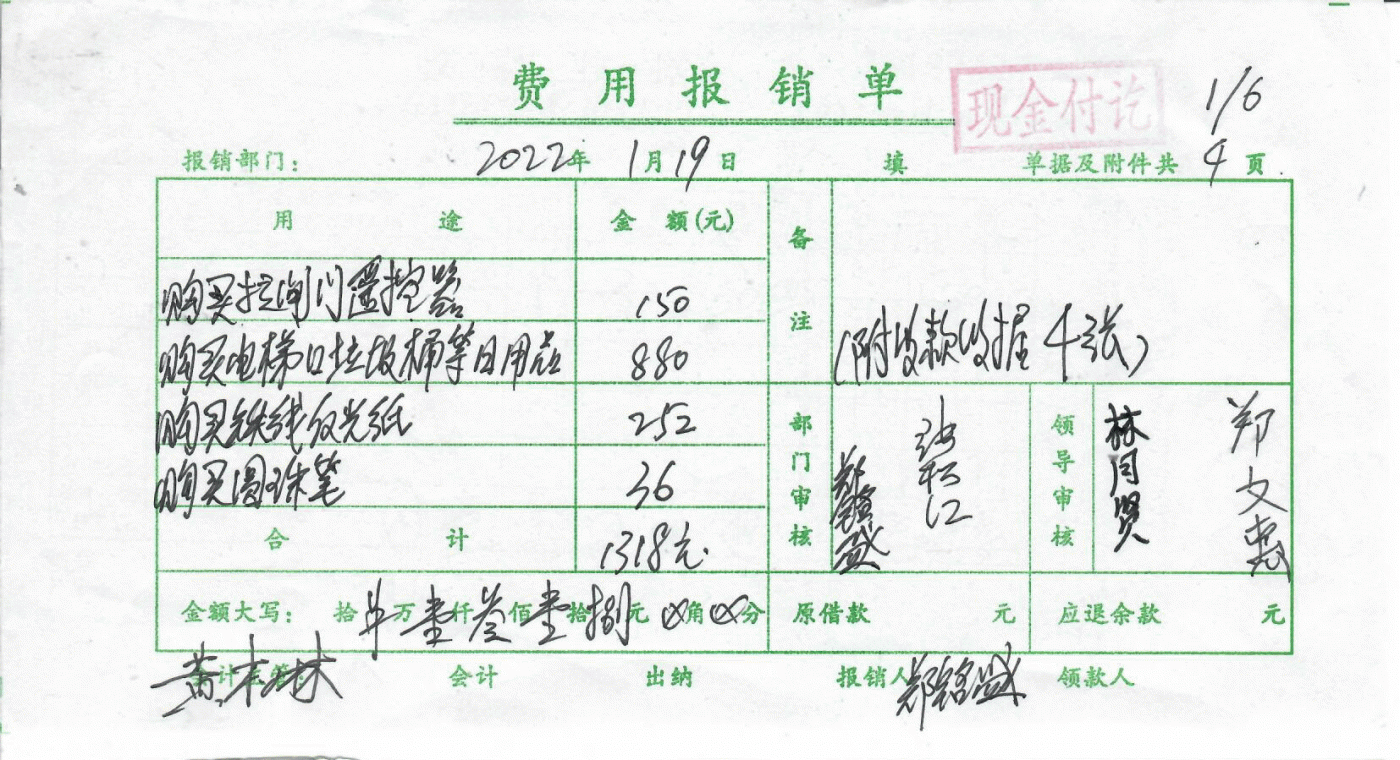 费用报销单
现金付讫
1/6
报销部门： 2022年 1月19日 填 单据及附件共 4 页
用途 金额(元) 备注
购买拉闸门遥控器 150
购买电梯口垃圾桶等日用品 880
(附收款收据4张)
购买铁线反光纸 252
购买圆珠笔 36
合计 1318元
部门审核 郑铭盛
领导审核 林同贤 郑文忠
金额大写： 拾 万壹仟叁佰壹拾捌元⊗角⊗分 原借款 元 应退余款 元
会计主管： 黄木林 会计 出纳 报销人 郑铭盛 领款人